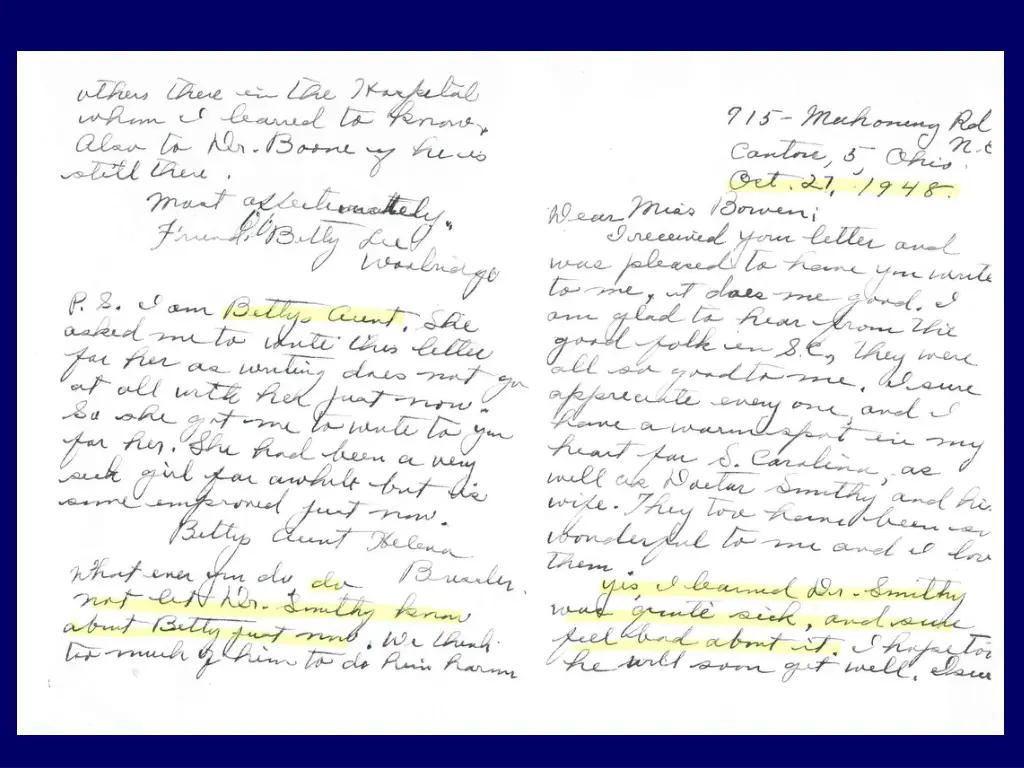 others there in the Hospital
whom I learned to know.
Also to Dr. Boone if he is
still there.
Most affectionately,
Friend, Betty Lee
Woolridge
P. S. I am Bettys Aunt. She
asked me to write this letter
for her as writing does not go
at all with her just now.
So she got me to write to you
for her. She had been a very
sick girl for awhile but is
some improved just now.
Bettys Aunt Helena
What ever you do, do
not let Dr. Smithy know
about Betty just now. We think
too much of him to do him harm
915- Mahoning Rd
N.E
Canton, 5, Ohio.
Oct. 27, 1948.
Dear Miss Bowen;
I received your letter and
was pleased to have you write
to me, it does me good. I
am glad to hear from the
good folk in S.C, They were
all so good to me. I sure
appreciate every one, and I
have a warm spot in my
heart for S. Carolina, as
well as Doctor Smithy, and his
wife. They too have been so
wonderful to me and I love
them.
yes, I learned Dr. Smithy
was quite sick, and sure
feel bad about it. I hope too
he will soon get well. I sure